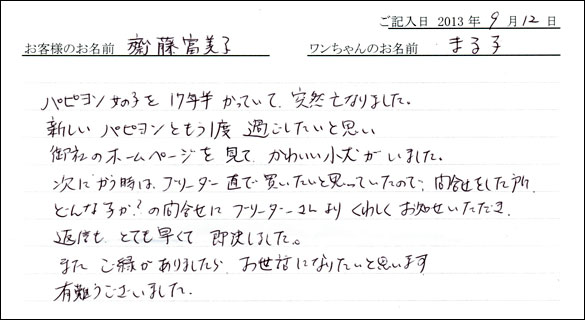 ご記入日 2013 年 9 月 12 日
お客様のお名前 齋藤富美子 ワンちゃんのお名前 まる子
パピヨン女の子を 17年半 かっていて、突然亡なりました。
新しい パピヨンともう1度 過ごしたいと思い
御社のホームページを見て かわいい小犬がいました。
次にかう時は ブリーダー直で買いたいと思っていたので、問合せをした所、
どんな子か?の問合せに ブリーダーさんより くわしく お知せいただき、
返信も とても早くて 即決しました。
また ご縁がありましたら お世話になりたいと思います
有難うございました.